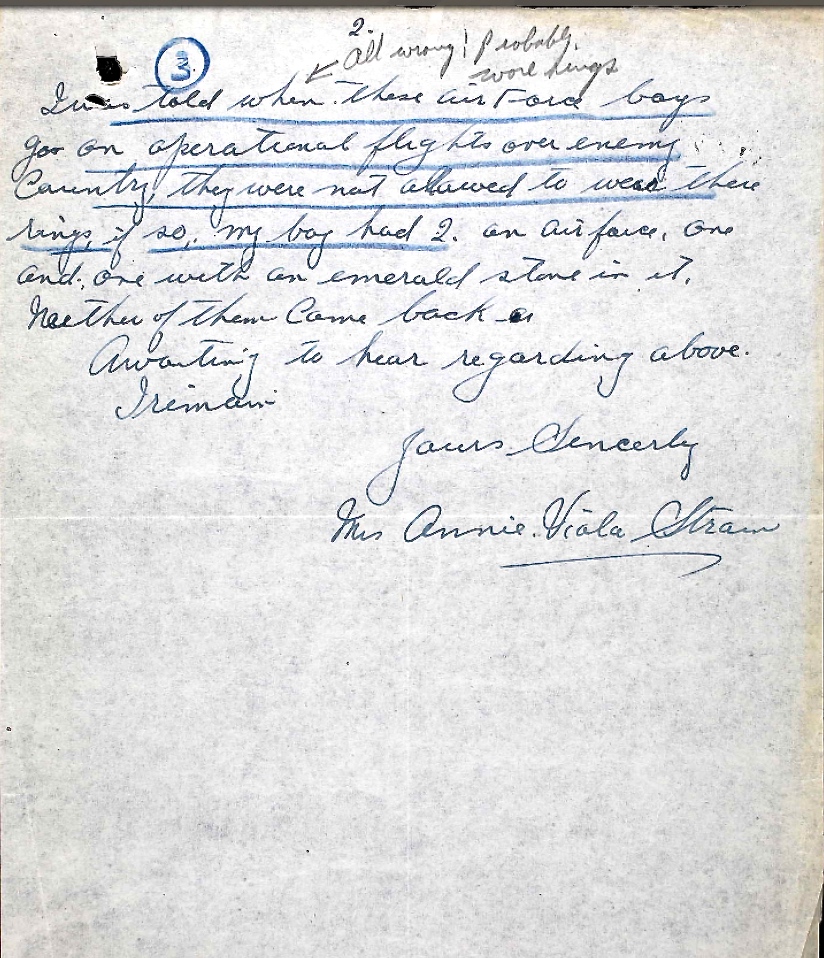 2.
3
All wrong! Probably
wore rings
I was told when these air Force boys
goo on operational flights over enemy
Country, they were not allowed to wear there
rings, if so, my boy had 2. an air force, one
and, one with an emerald stone in it.
Neither of them Come back
Awaiting to hear regarding above.
I remain
Yours Sincerly
Mrs Annie. Viola Strain